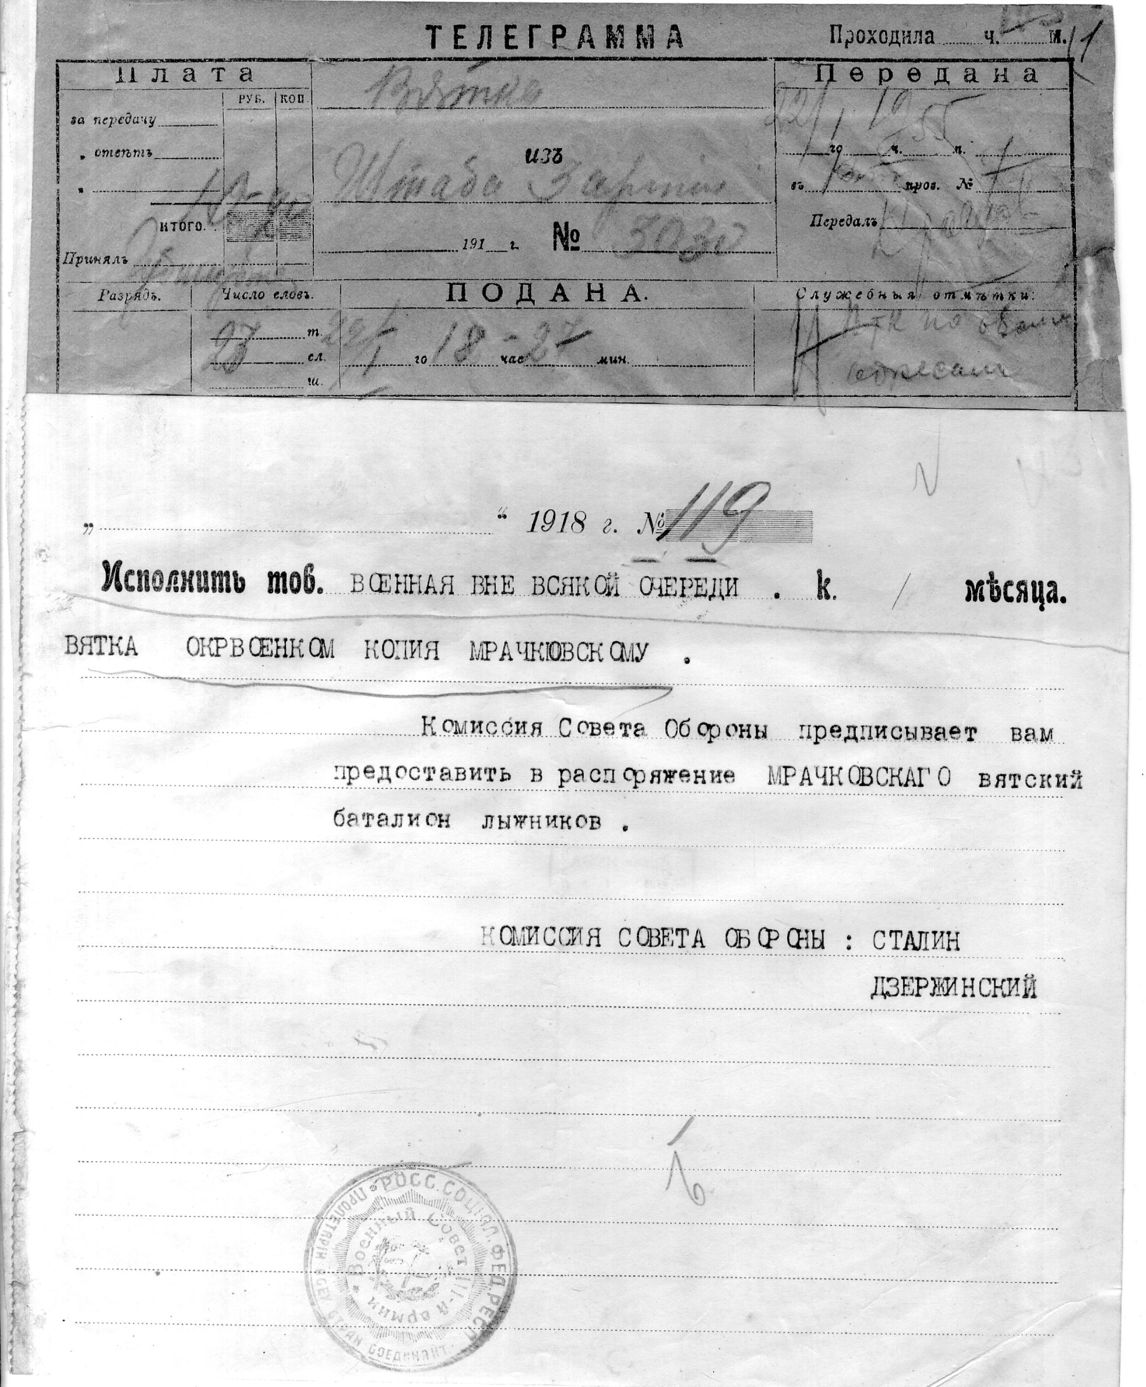 ТЕЛЕГРАММА Проходила ч. м.
Плата Передана
РУБ. КОП
Вятка
за передачу
22/I 19 55
„ отвѣтъ изъ го ч. м.
Штаба 3 армии въ пров. №
ИТОГО. Передалъ
191 г. № 3030
Принялъ
Разрядъ. Число словъ. ПОДАНА. Служебныя отмѣтки:
т. 22/I го 18 час 27 мин. по двум
23 сл. адресам
ш.
„ “ 1918 г. № 119
Исполнить тов. ВОЕННАЯ ВНЕ ВСЯКОЙ ОЧЕРЕДИ . к. / мѣсяца.
ВЯТКА ОКРВОЕНКОМ КОПИЯ МРАЧКЮВСКОМУ .
Комиссия Совета Обороны предписывает вам
предоставить в распоряжение МРАЧКОВСКАГО вятский
баталион лыжников .
КОМИССИЯ СОВЕТА ОБОРОНЫ : СТАЛИН
ДЗЕРЖИНСКИЙ
РОСС. СОЦ. ФЕД. РЕСП.
ПРОЛЕТАРИИ ВСЕХ СТРАН СОЕДИНЯЙТ.
Военный Совет III-й армии